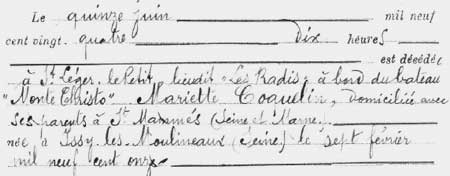 Le quinze juin mil neuf
cent vingt. quatre Dix heures
est décédée
à St Léger. le Petit, lieudit "Les Radis" à bord du bateau
"Monte Christo" Mariette Coquelin, domiciliée avec
ses parents à St Mammès (Seine et Marne).
née à Issy. les. Moulineaux (Seine) le sept février
mil neuf cent onze